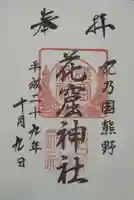 奉拝
紀乃国熊野
花窟神社
平成二十九年
十月九日